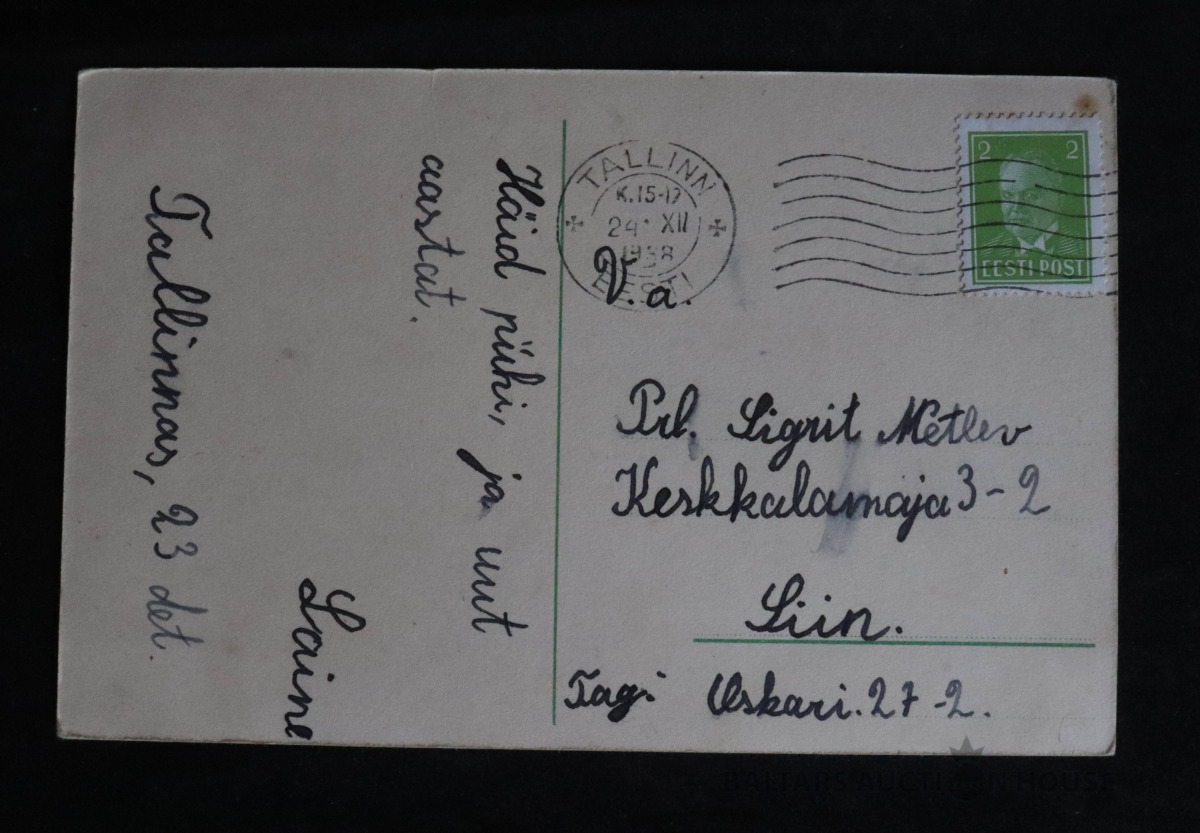 Häid pühi, ja uut
aastat.
Laine
Tallinnas, 23 det.
TALLINN
K.15-17
24 XII
1938
EESTI
2 2
EESTI POST
V. a.
Prl. Sigrit Metlev
Keskkalamaja 3-2
Siin.
Tag: Oskari. 27-2.
BALTARS AUCTION HOUSE